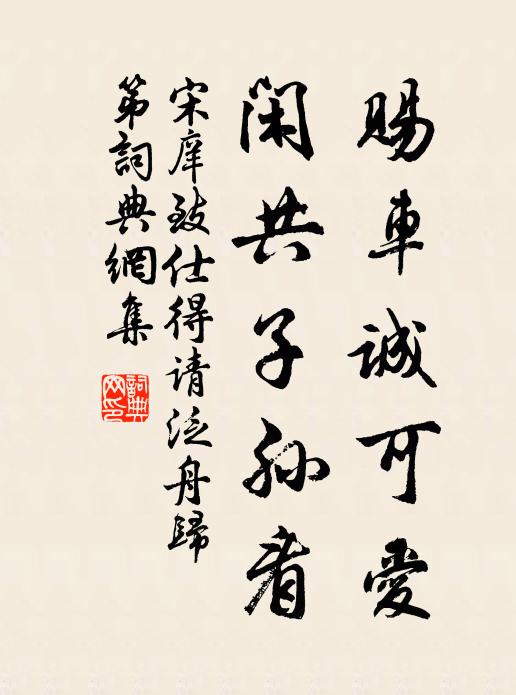 賜車誠可愛
閑共子孫看
宋庠致仕得请泛舟歸
第詞典網集
詞典
网印